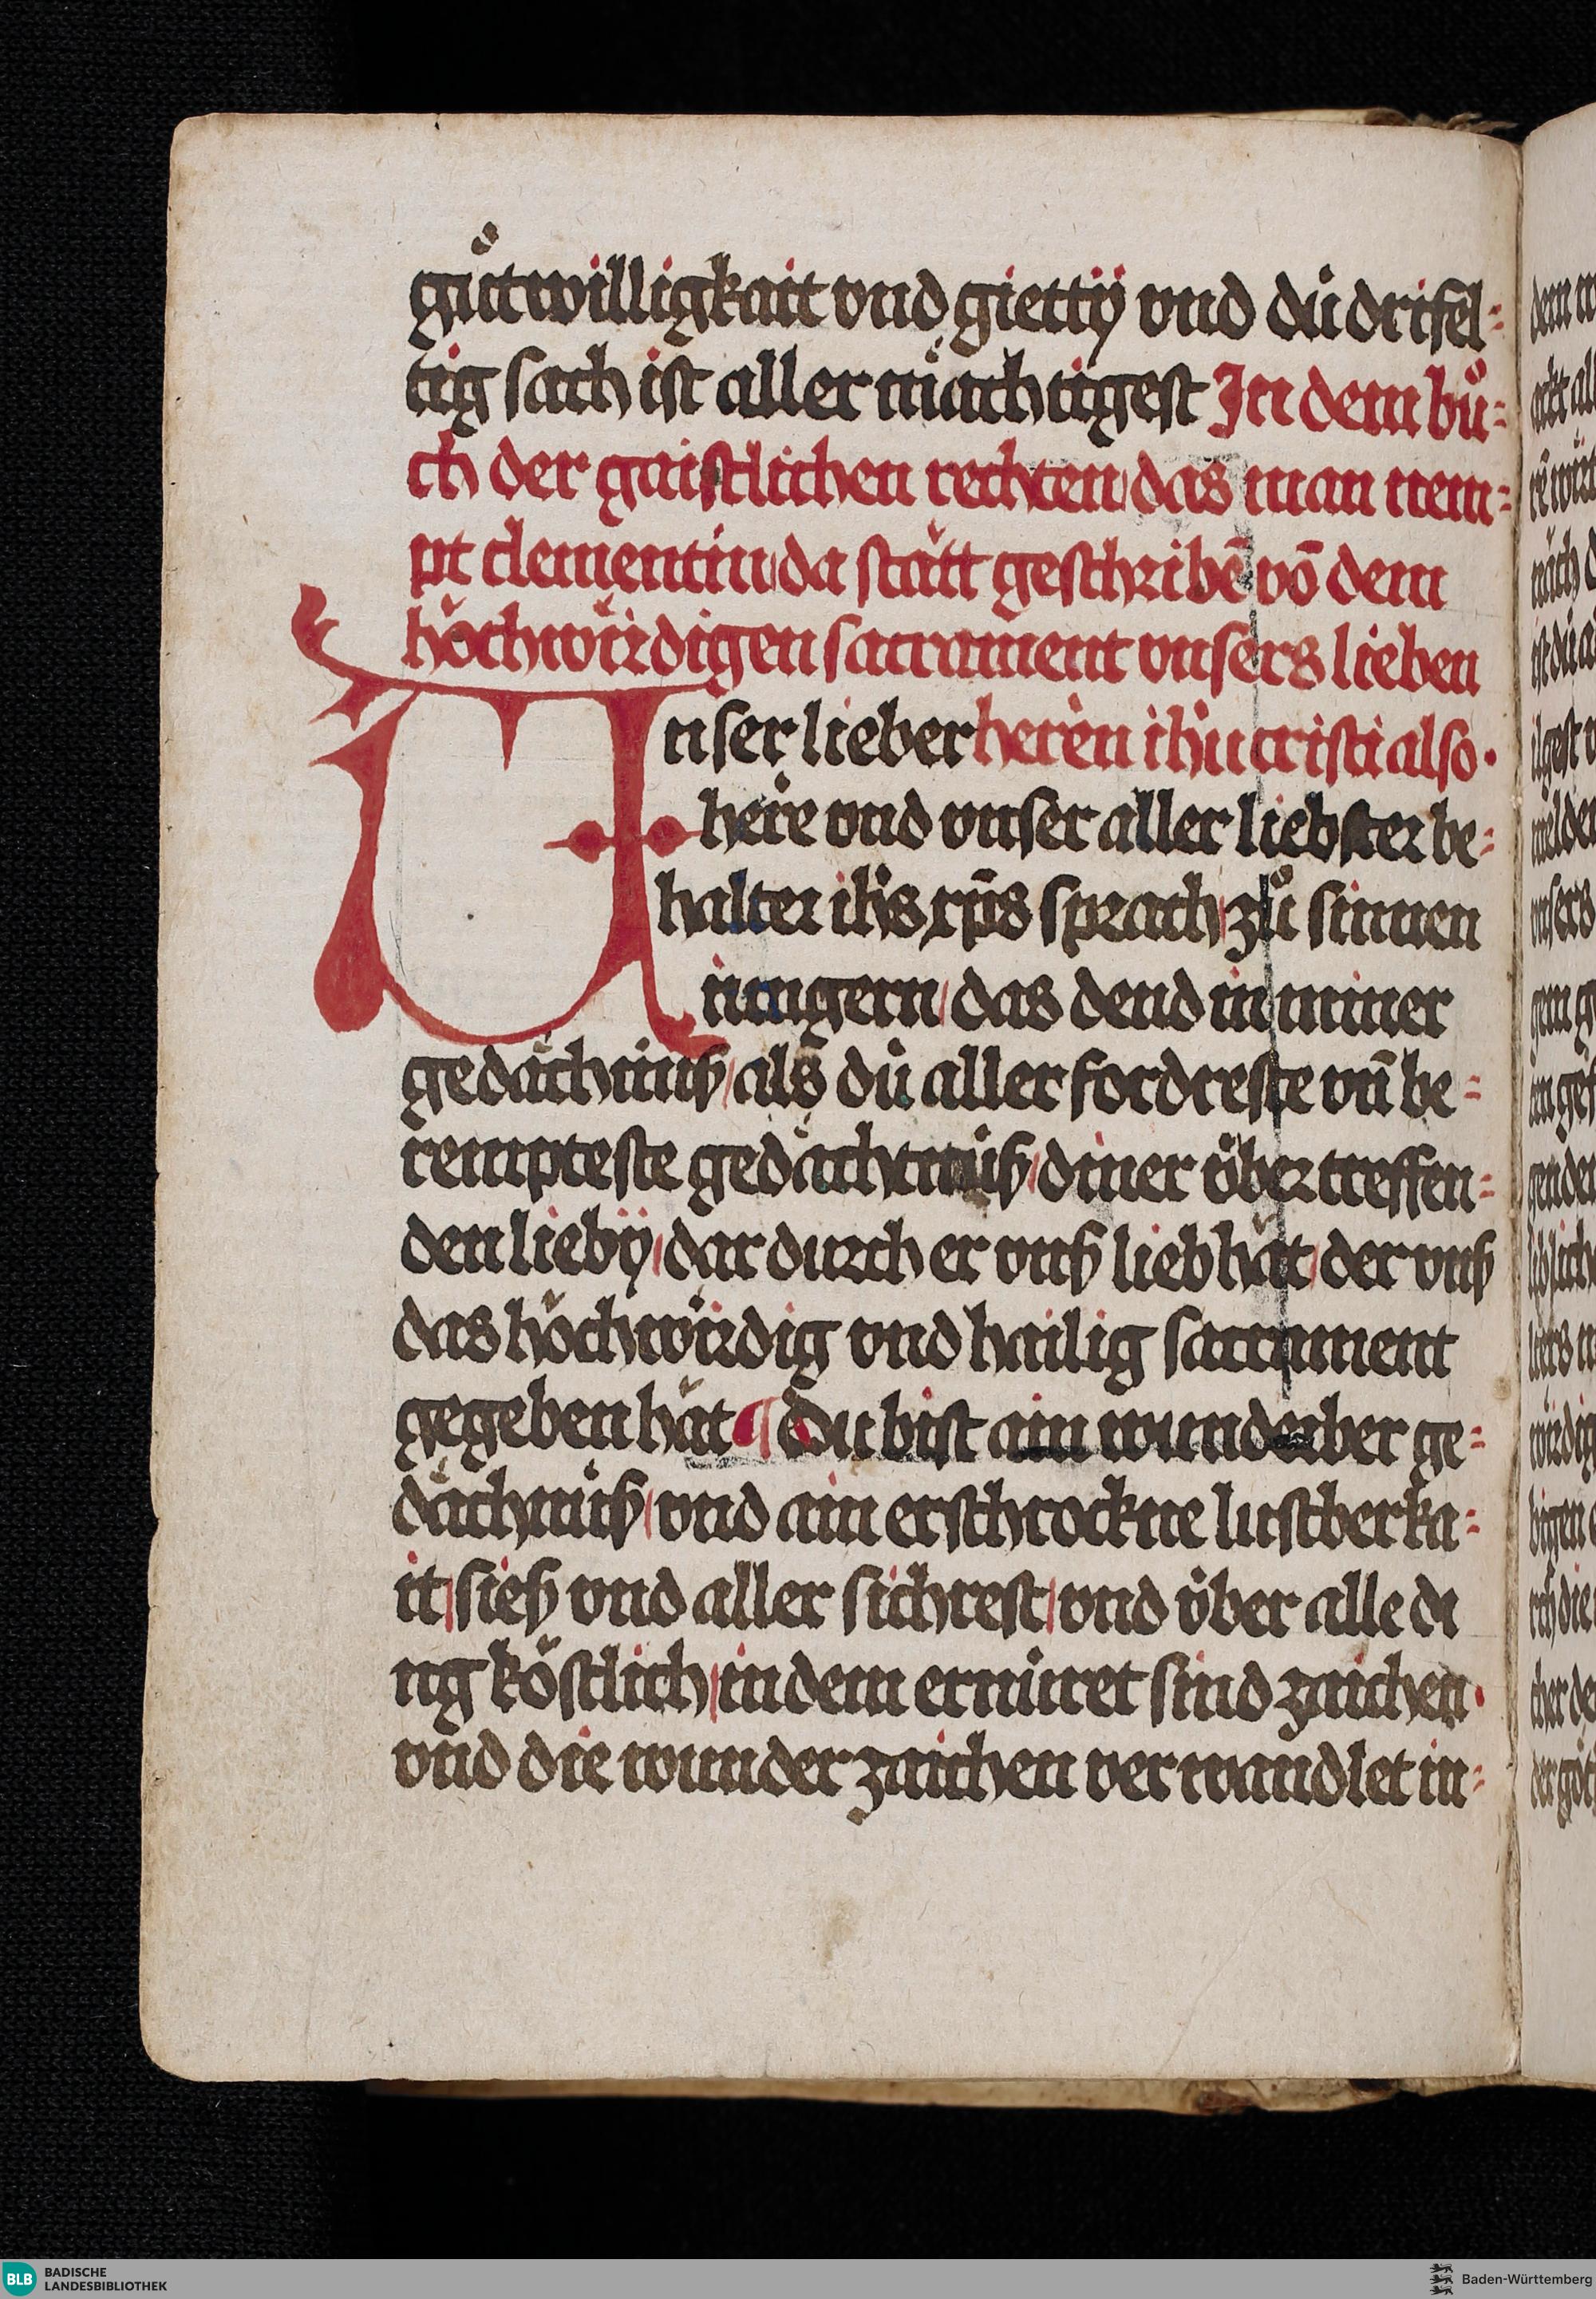 guͦtwilligkait vnd giettÿ vnd du̇ drifel=
tig sach ist aller mächtigest In dem buͦ=
ch der gaistlichen rechten das man nem=
pt clementin da stätt geschribē vō dem
höchwürdigen sacrament vnsers lieben
Unser lieber heren ihu cristi also·
here vnd vnser aller liebster be=
halter ih̄s xp̄s sprach zuͦ sinnen
iungern das dend in miner
gedächnuß als du̇ aller fordreste vn̄ be=
rempteste gedächtnuß diner übertreffen=
den liebÿ dar durch er vnß lieb hät der vnß
das höchwürdig vnd hailig sacrament
gegeben hät ¶ Du bist ain wunderber ge=
dächnüß vnd ain erschrockne lustberka=
it sieß vnd aller sichrest vnd über alle di
ng köstlich in dem ernüret sind zaichen·
vnd die wunder zaichen verwandlet in=
BLB BADISCHE
LANDESBIBLIOTHEK
Baden-Württemberg